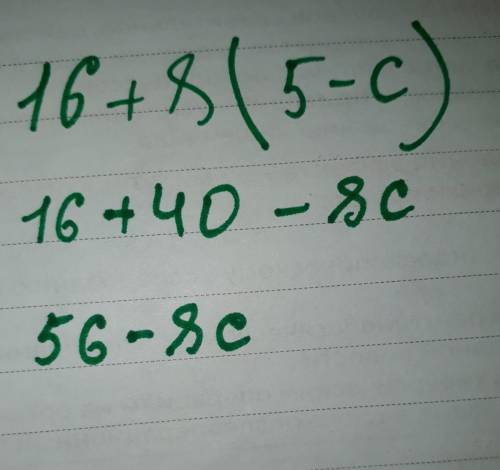 16 + 8 ( 5 - c )
16 + 40 - 8c
56 - 8c